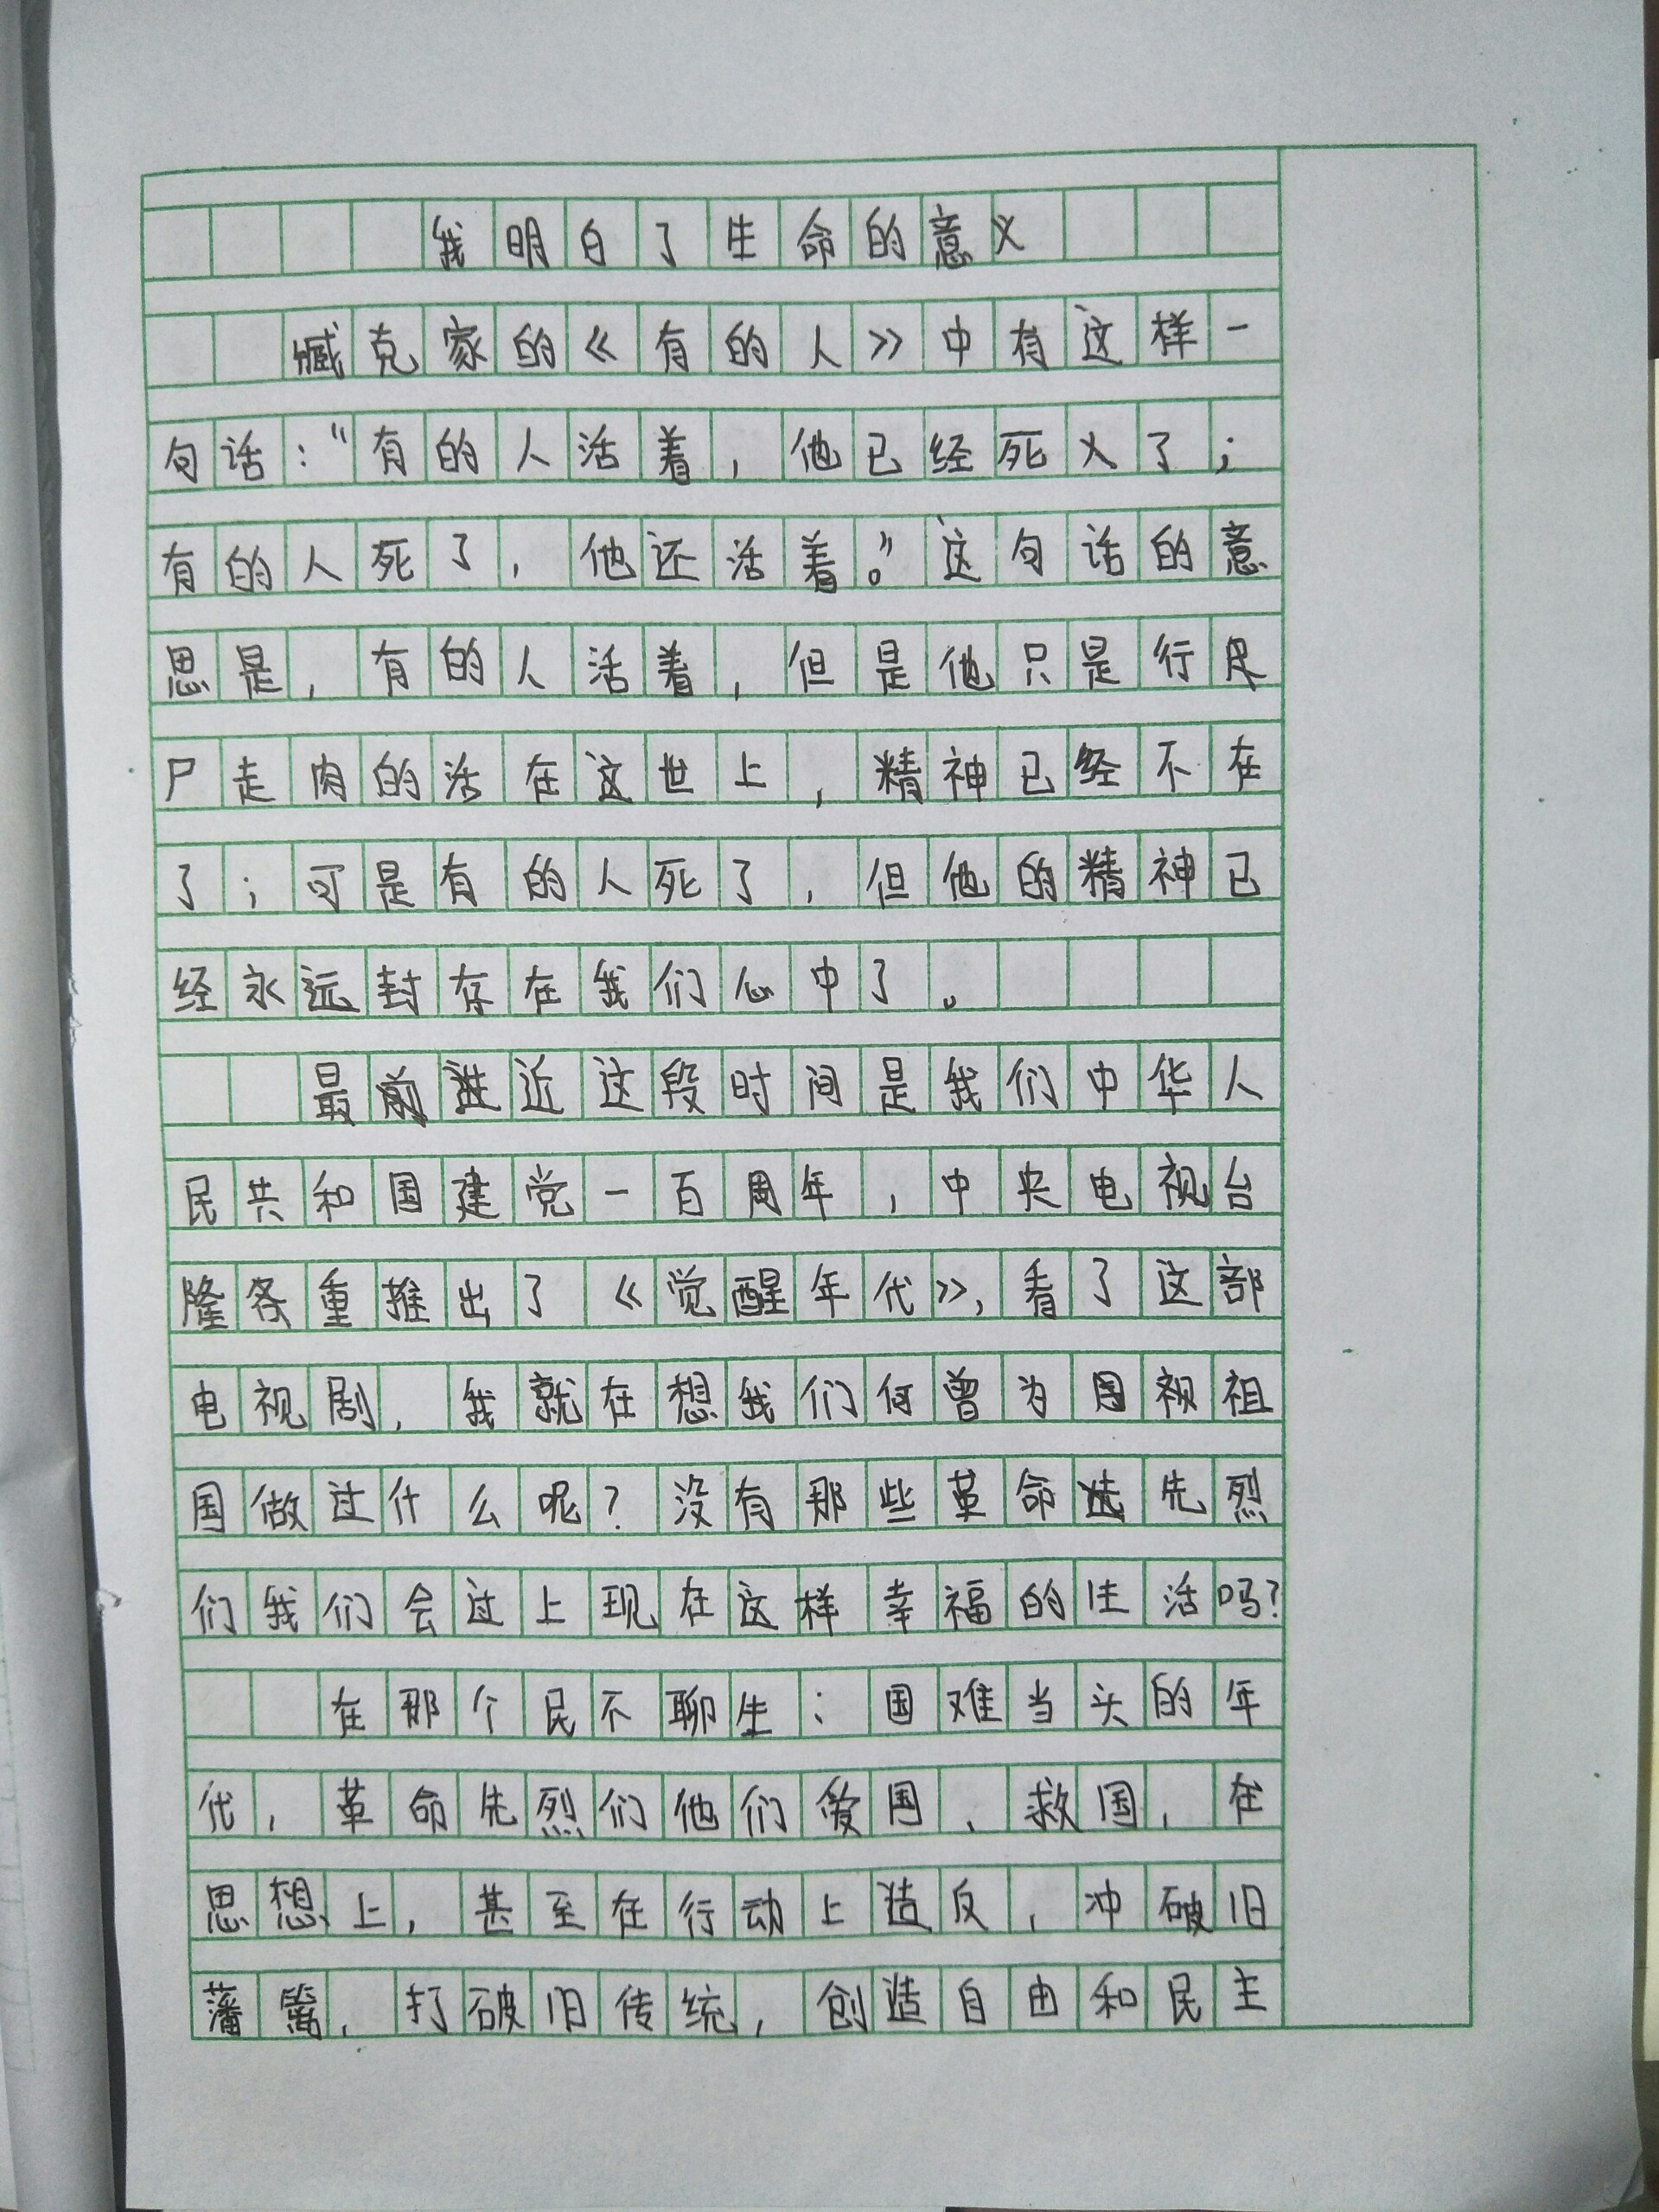 我明白了生命的意义
臧克家的《有的人》中有这样一
句话："有的人活着,他已经死了;
有的人死了,他还活着。"这句话的意
思是,有的人活着,但是他只是行
尸走肉的活在这世上,精神已经不在
了;可是有的人死了,但他的精神已
经永远封存在我们心中了。
最近这段时间是我们中华人
民共和国建党一百周年,中央电视台
隆条重推出了《觉醒年代》,看了这部
电视剧,我就在想我们何曾为国祖
国做过什么呢?没有那些革命先烈
们我们会过上现在这样幸福的生活吗?
在那个民不聊生;国难当头的年
代,革命先烈们他们爱国、救国,在
思想上,甚至在行动上造反,冲破旧
藩篱,打破旧传统,创造自由和民主